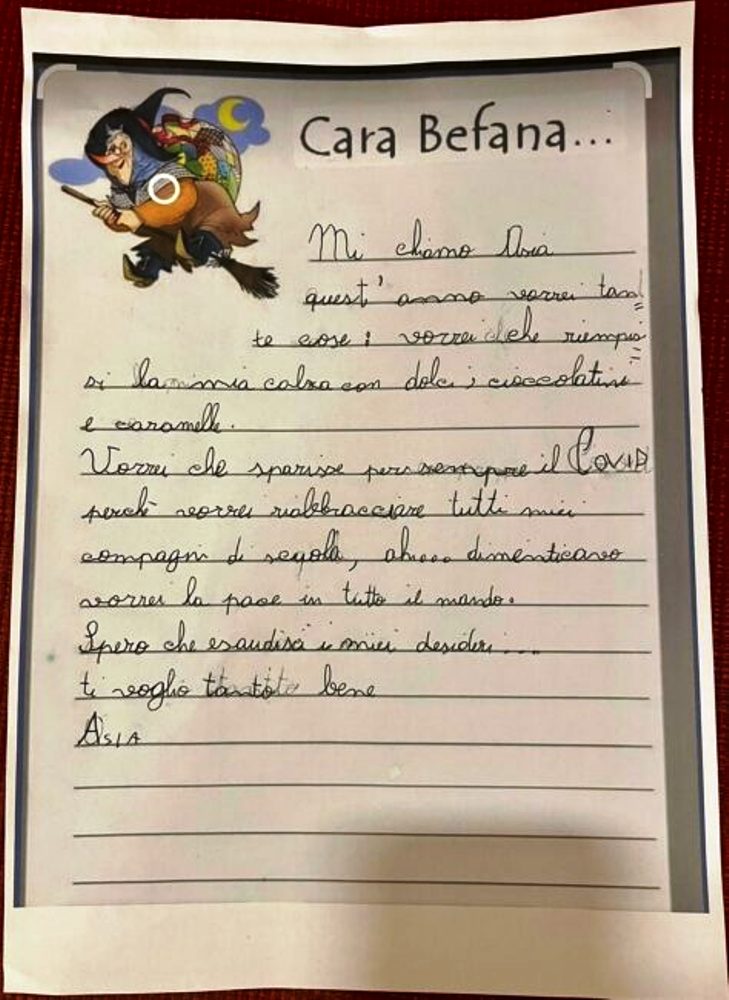 Cara Befana...
Mi chiamo Asia
quest'anno vorrei tan=
te cose: vorrei che riempis=
si la mia calza con dolci, cioccolatini
e caramelle.
Vorrei che sparisse per sempre il COVID
perchè vorrei riabbracciare tutti miei
compagni di scuola, ah... dimenticavo
vorrei la pace in tutto il mondo.
Spero che esaudisci i miei desideri....
ti voglio tanto bene
ASIA